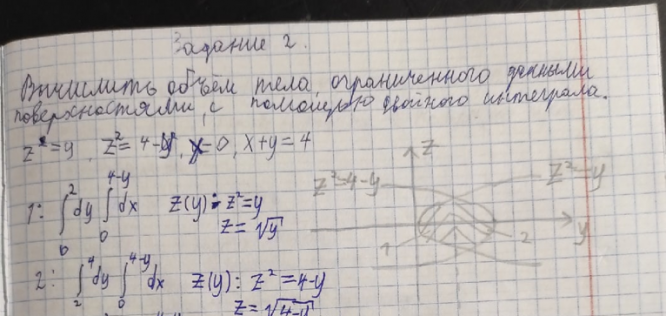 Задание 2.
Вычислить объём тела, ограниченного данными
поверхностями, с помощью двойного интеграла.
z²=y, z²=4-y, x=0, x+y=4
1: ∫₀² dy ∫₀^{4-y} dx z(y): z²=y
z=√y
2: ∫₂⁴ dy ∫₀^{4-y} dx z(y): z²=4-y
z=√(4-y)
z
z²=4-y
z²=y
y
1
2